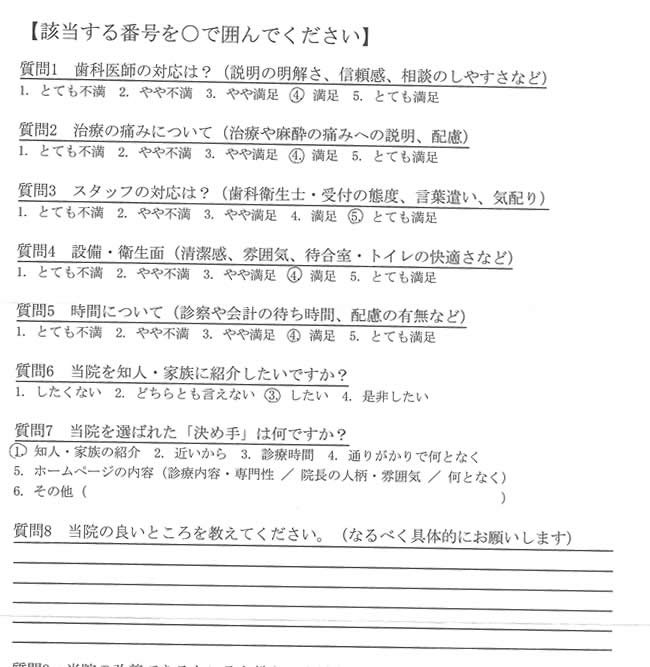 【該当する番号を○で囲んでください】
質問1　歯科医師の対応は？（説明の明解さ、信頼感、相談のしやすさなど）
1. とても不満　2. やや不満　3. やや満足　④ 満足　5. とても満足
質問2　治療の痛みについて（治療や麻酔の痛みへの説明、配慮）
1. とても不満　2. やや不満　3. やや満足　④ 満足　5. とても満足
質問3　スタッフの対応は？（歯科衛生士・受付の態度、言葉遣い、気配り）
1. とても不満　2. やや不満　3. やや満足　4. 満足　⑤ とても満足
質問4　設備・衛生面（清潔感、雰囲気、待合室・トイレの快適さなど）
1. とても不満　2. やや不満　3. やや満足　④ 満足　5. とても満足
質問5　時間について（診察や会計の待ち時間、配慮の有無など）
1. とても不満　2. やや不満　3. やや満足　④ 満足　5. とても満足
質問6　当院を知人・家族に紹介したいですか？
1. したくない　2. どちらとも言えない　③ したい　4. 是非したい
質問7　当院を選ばれた「決め手」は何ですか？
① 知人・家族の紹介　2. 近いから　3. 診療時間　4. 通りがかりで何となく
5. ホームページの内容（診療内容・専門性 ／ 院長の人柄・雰囲気 ／ 何となく）
6. その他（　　）
質問8　当院の良いところを教えてください。（なるべく具体的にお願いします）